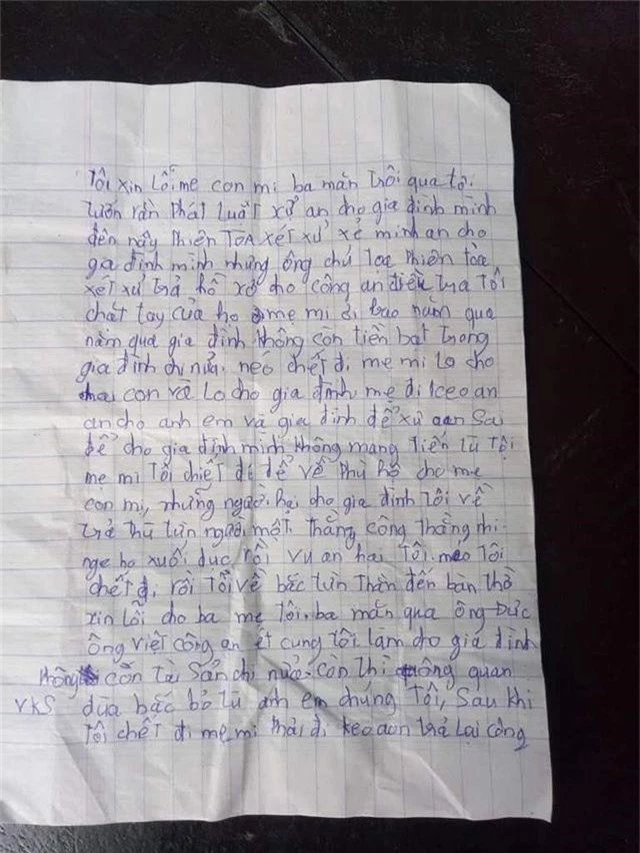 Tôi xin Lỗi mẹ con mi ba măn trôi qua tô.
luôn rằn Phát Luất xử an cho gia đình mình
đến nây Phiên Tòa xét xử xẻ minh an cho
gia đình mình nhưng ông chủ Tọa Phiên tòa
xét xử trả hồ xơ cho công an điều tra Tôi
chất tay của họ mẹ mi đi bao năm qua
năm qua gia đình không còn tiền bạt trong
gia đình chi nửa. néo chết đi mẹ mi lo cho
con và lo cho gia đình mẹ đi keo an
an cho anh em và gia đình để xử oan Sa
để cho gia đình mình không mang tiến tù Tội
mẹ mi Tôi chiết đi để về Phù hô cho mẹ
con mi, những người hại cho gia đình Tôi về
trả thù từn người một. thằng công thằng nhi
nge họ xuối dục rồi vu an hai Tôi. néo Tôi
chết đi rồi Tôi về bắc từn thằn đến bàn thờ
xin lỗi cho ba mẹ Tôi. ba măn qua ông Đức
ông việt công an ét cung tôi làm cho gia đình
không còn Tài Sản chi nửa. còn thì ông quan
VKS dùa bắc bỏ tù anh em chúng Tôi, Sau khi
Tôi chết đi mẹ mi Phải đi keo oan trả lại công